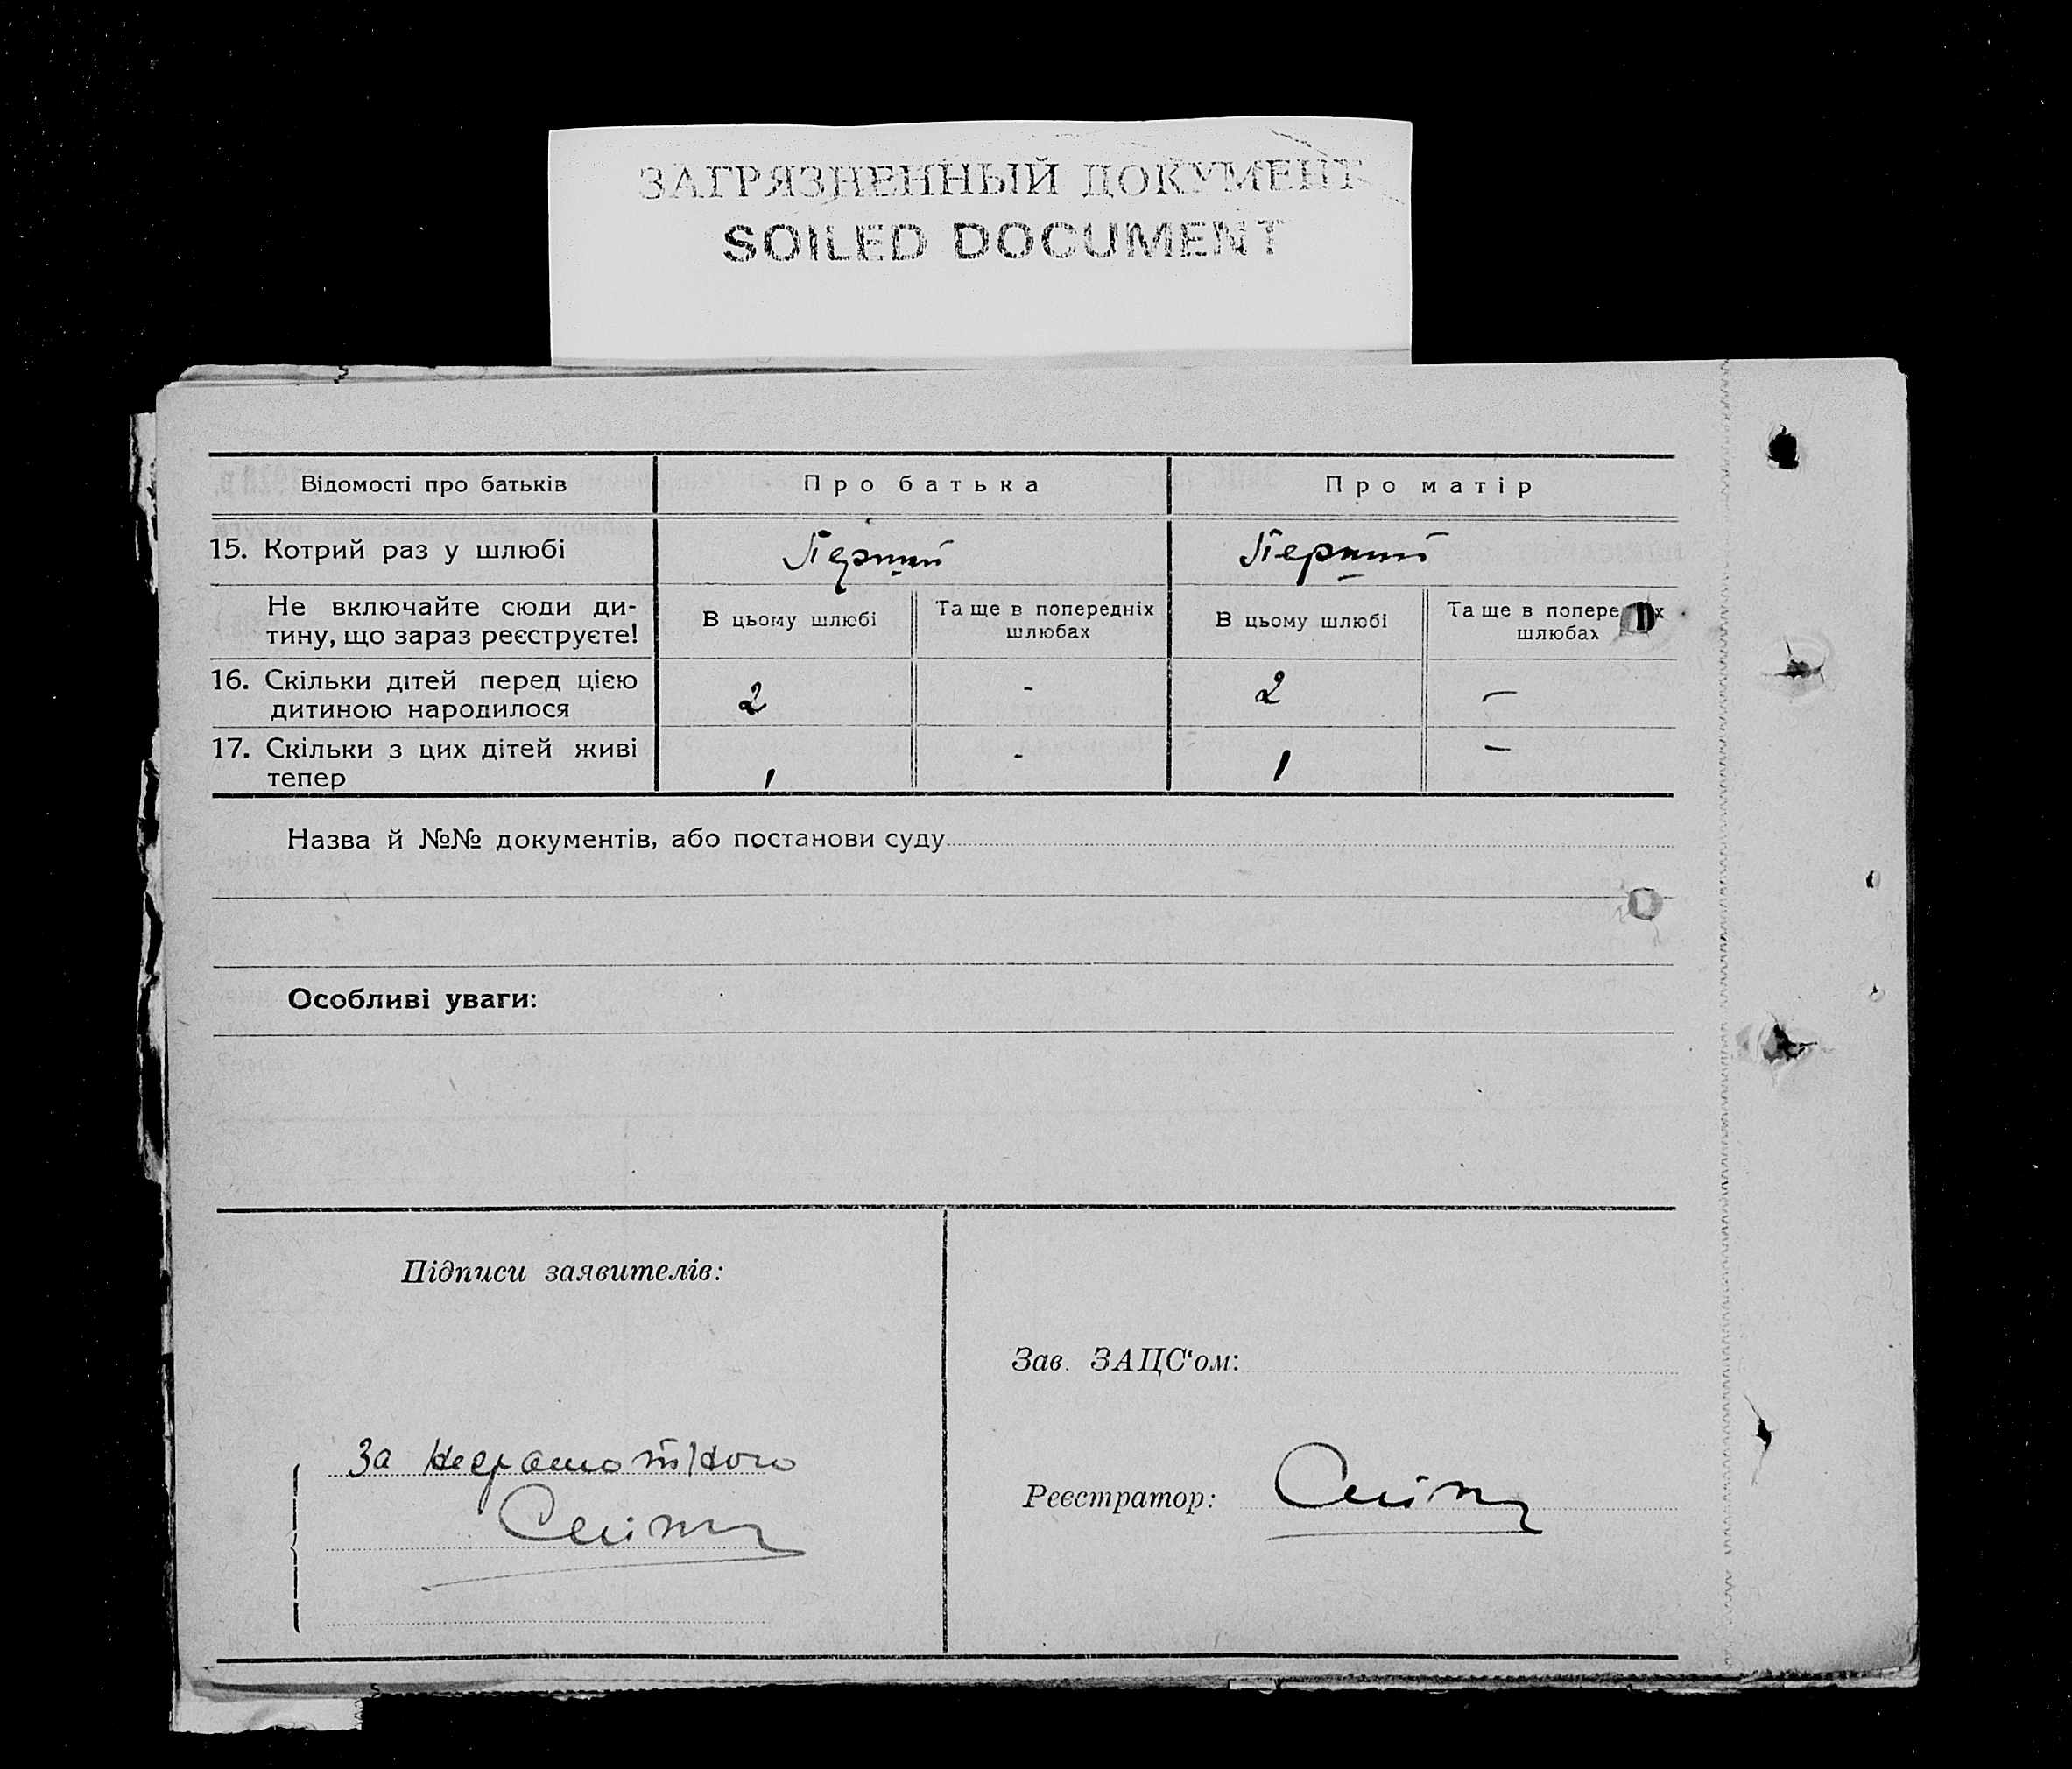 ЗАГРЯЗНЕННЫЙ ДОКУМЕНТ
SOILED DOCUMENT
Відомості про батьків
Про батька
Про матір
15. Котрий раз у шлюбі
Перший
Перший
Не включайте сюди ди-
тину, що зараз реєструєте!
В цьому шлюбі
Та ще в попередніх
шлюбах
В цьому шлюбі
Та ще в
шлюбах
16. Скільки дітей перед цією
дитиною народилося
2
-
2
—
17. Скільки з цих дітей живі
тепер
1
-
1
—
Назва й №№ документів, або постанови суду
Особливі уваги:
Підписи заявителів:
За неграмотного
Зав. ЗАЦС‘ом:
Реєстратор: